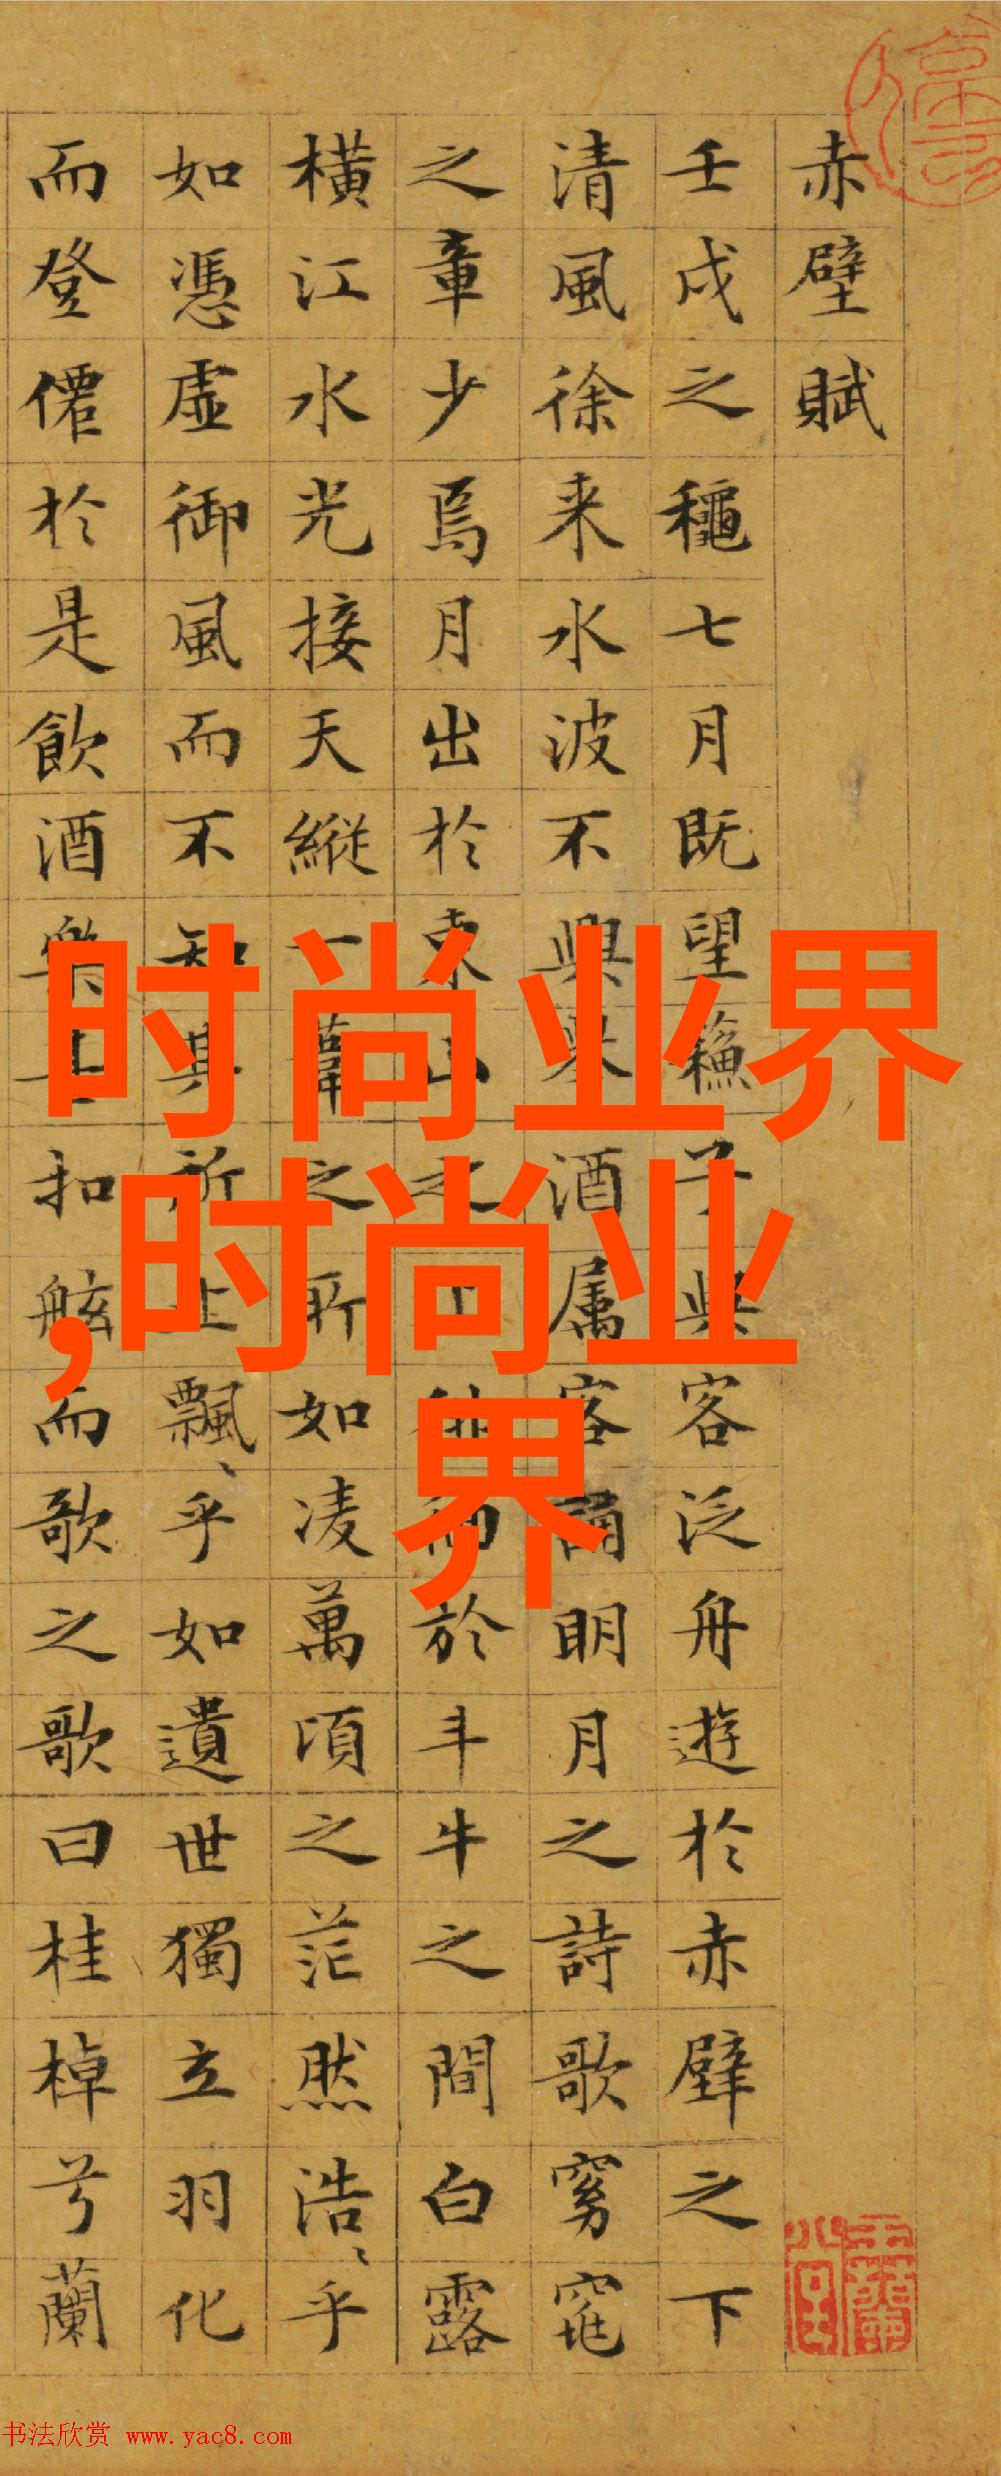 赤壁賦
壬戌之穐七月既望蘓子與客泛舟遊於赤壁之下
清風徐来水波不興舉酒属客誦明月之詩歌窈窕
之章少焉月出於東山之上徘徊於斗牛之間白露
橫江水光接天縱一葦之所如凌萬頃之茫然浩〻乎
如憑虛御風而不知其所止飄〻乎如遺世獨立羽化
而登僊於是飲酒樂甚扣舷而歌之歌曰桂棹兮蘭
时尚业界
,时尚业
界
书法欣赏 www.yac8.com